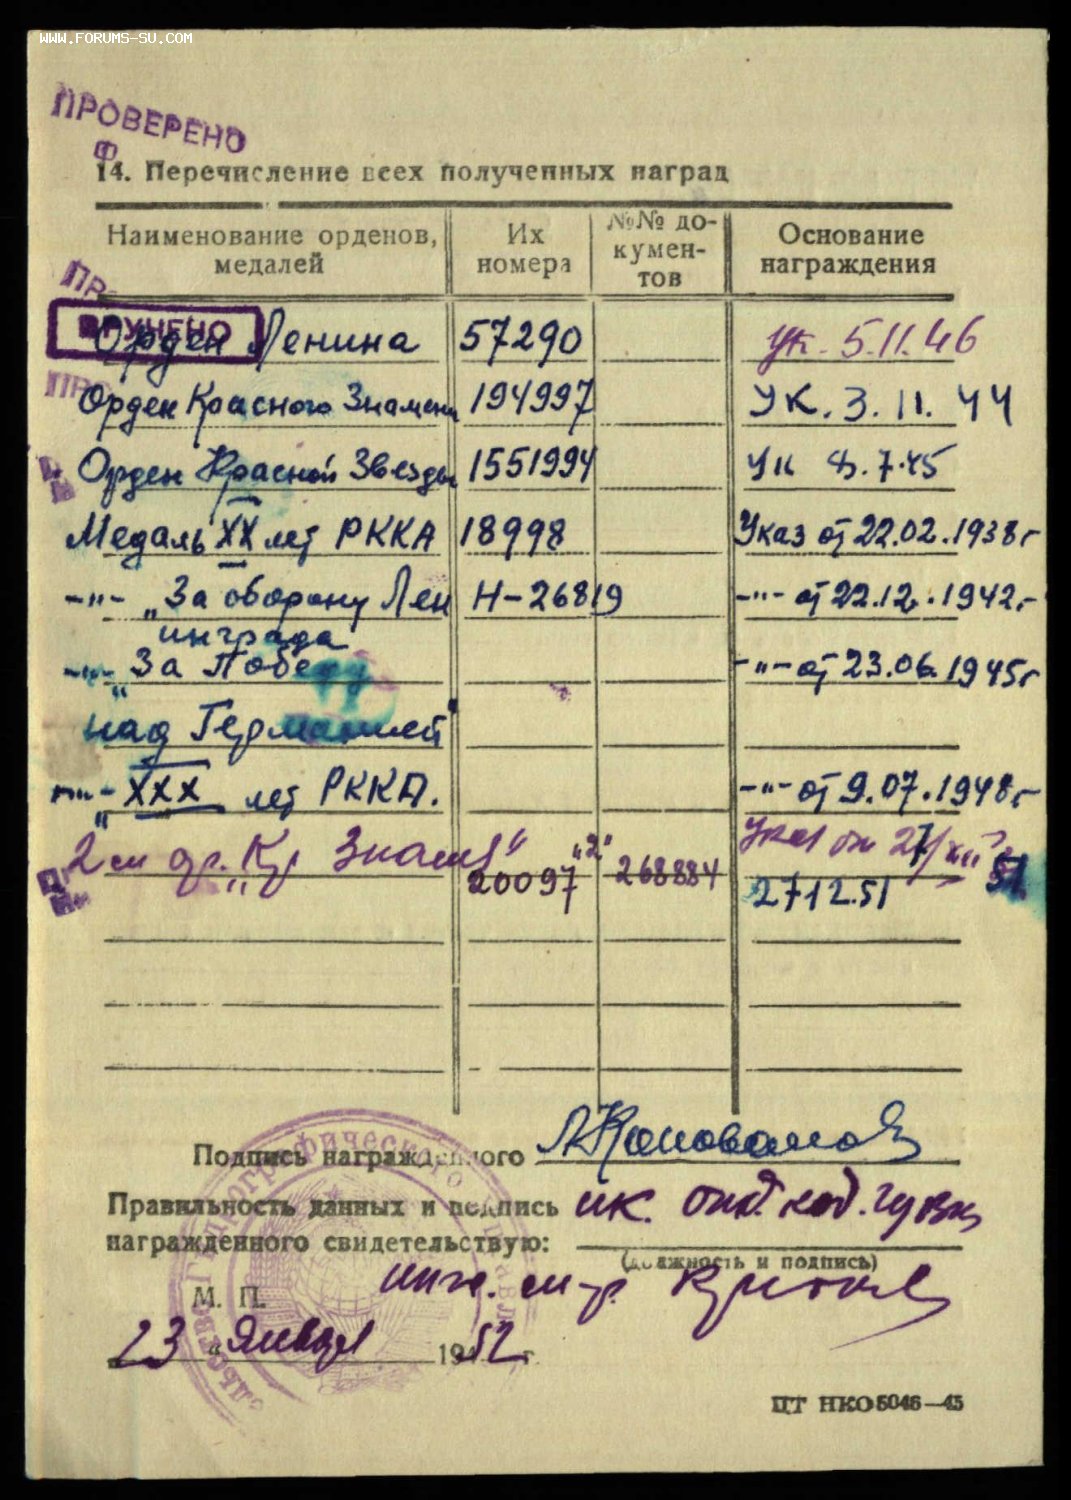 WWW.FORUMS-SU.COM
ПРОВЕРЕНО
14. Перечисление всех полученных наград
Наименование орденов, медалей Их номера №№ документов Основание награждения
ВРУЧЕНО
Орден Ленина 57290 Ук. 5.11.46
Орден Красного Знамени 194997 УК. 3.11.44
Орден Красной Звезды 1551994 Ук 8.7.45
Медаль XX лет РККА 18998 Указ от 22.02.1938г
-"- „За оборону Лен Н-26819 -"- от 22.12.1942г
инграда
-"- „За Победу -"- от 23.06.1945г
над Германией"
-"- „XXX лет РККА. -"- от 9.07.1948г
2ой ор. „Кр Знамя" 20097 "2" 268884 Указ от 27/XII 51
2712.51
Подпись награжденного Л Коновалов
Правильность данных и подпись
награжденного свидетельствую:
(должность и подпись)
М. П.
23 „ января 1952 г.
ЦТ НКО 5046—45